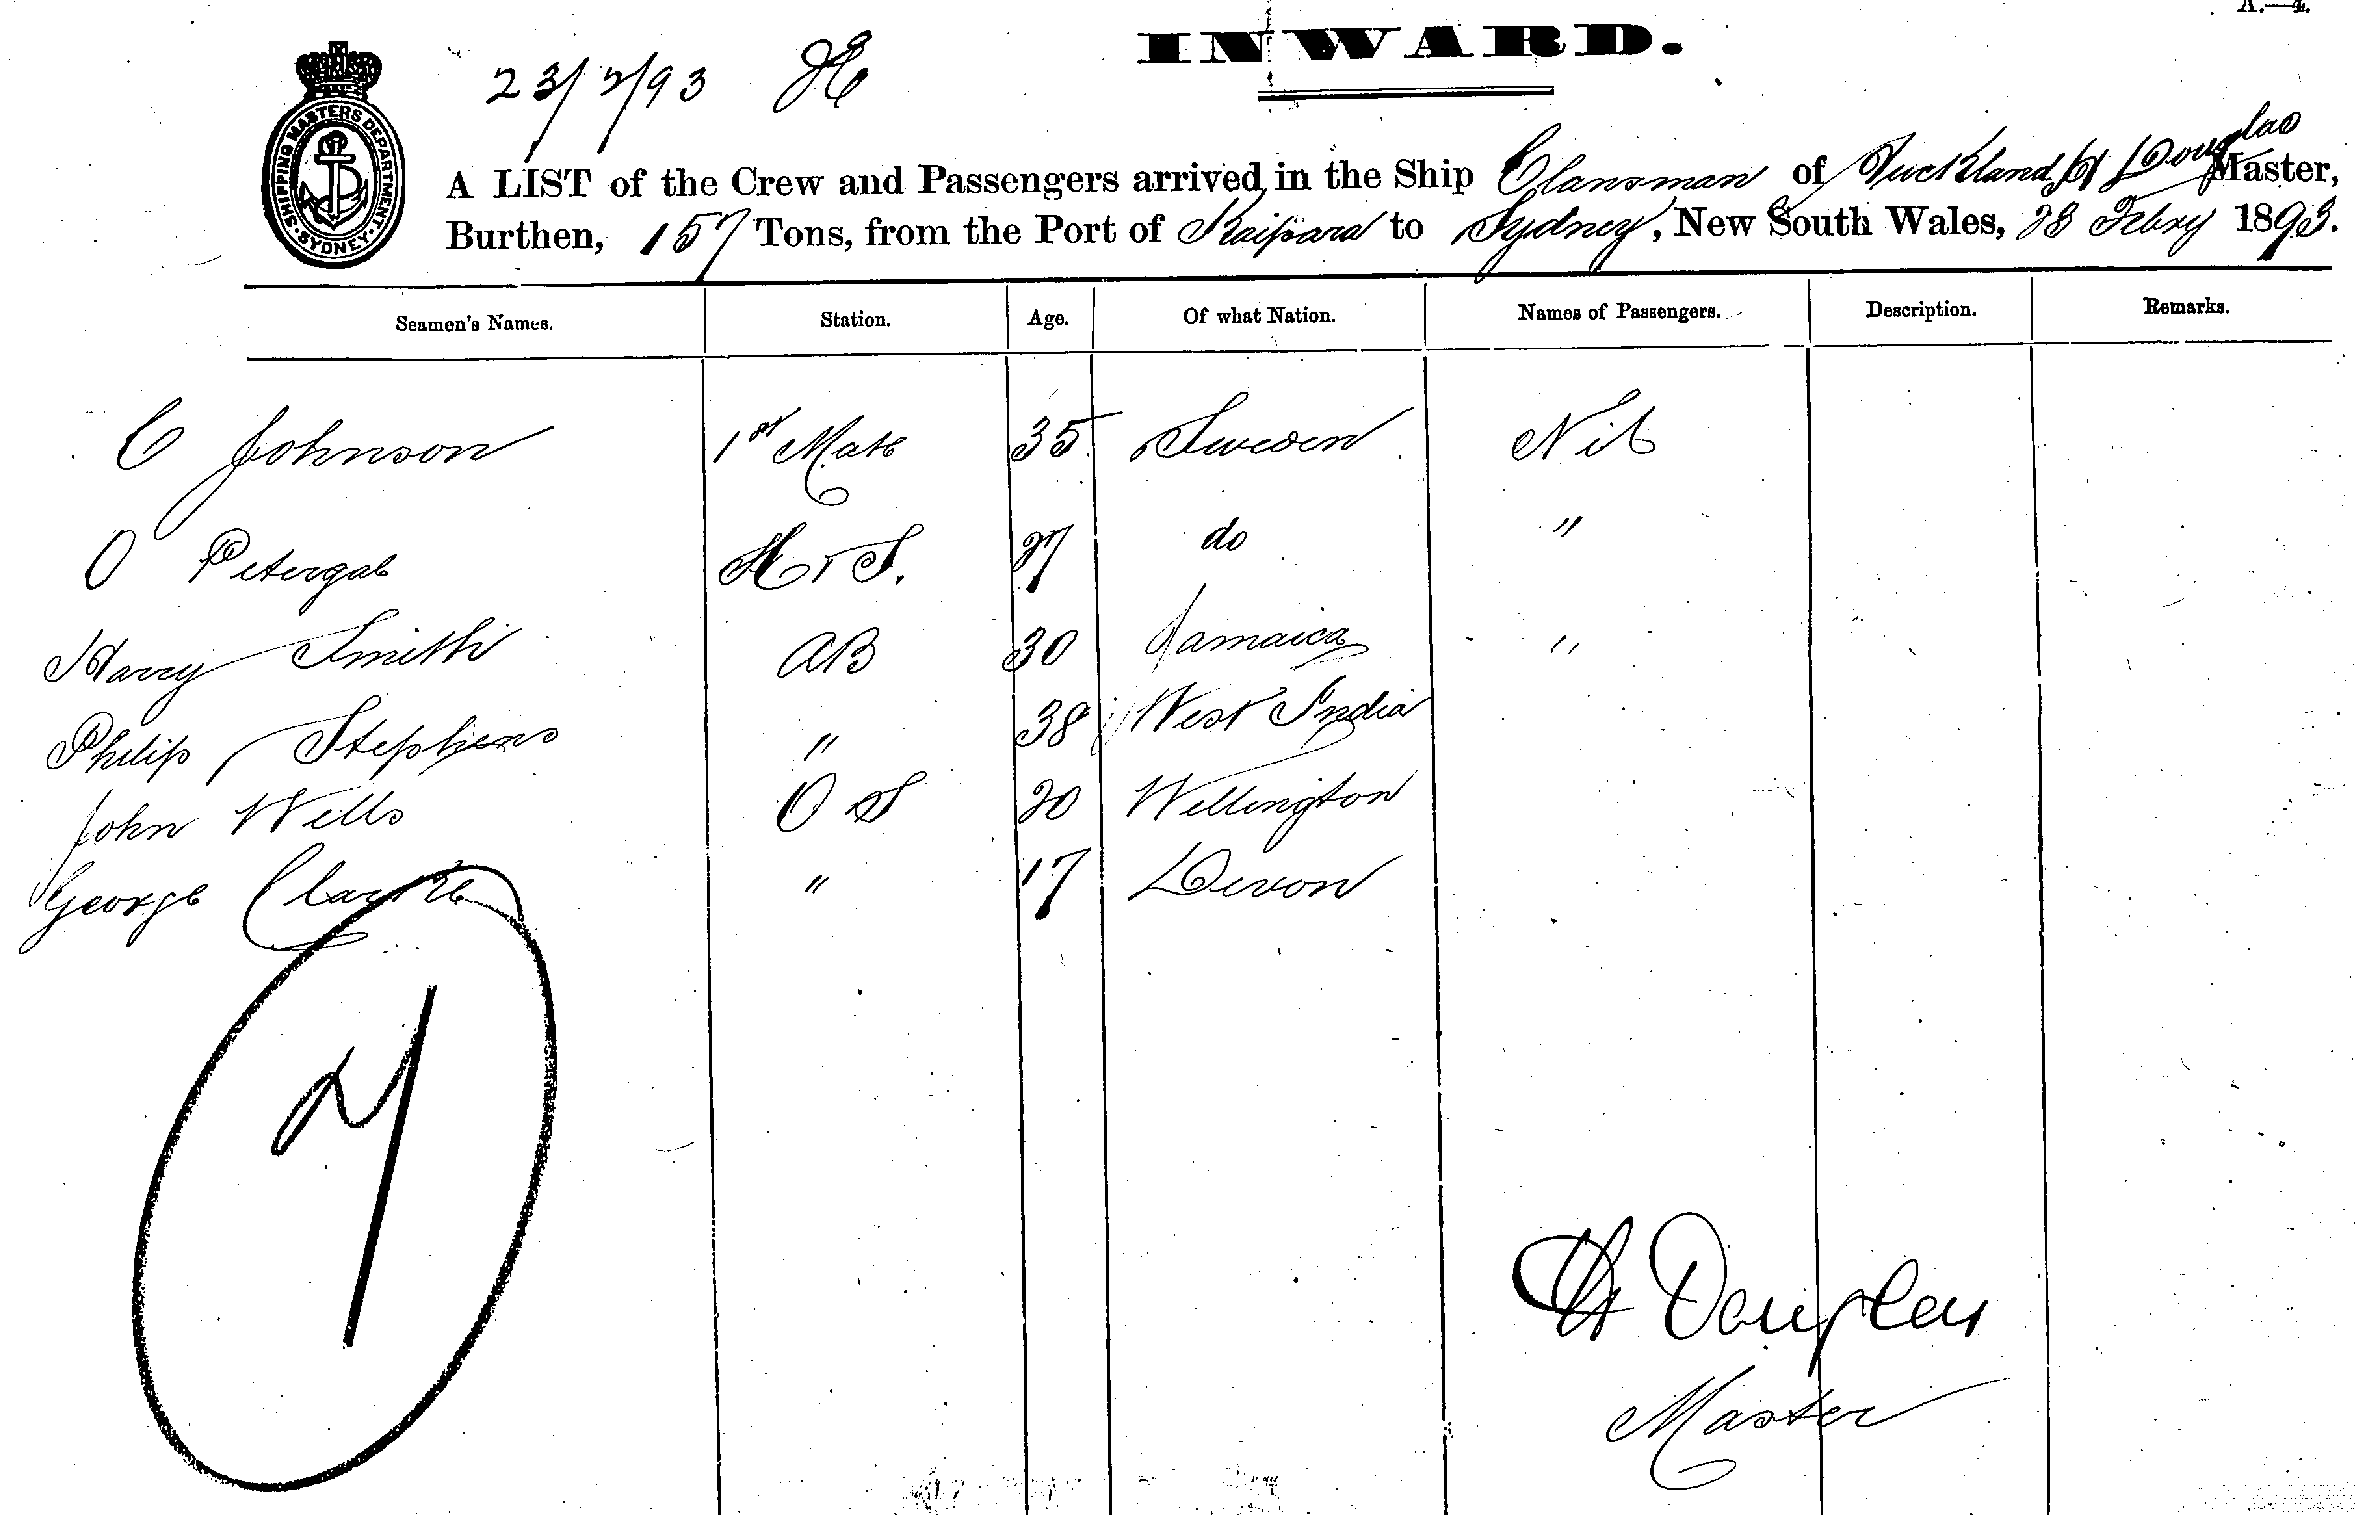 A.—4.
23/2/93
INWARD.
SHIPPING MASTERS DEPARTMENT
SYDNEY
A LIST of the Crew and Passengers arrived in the Ship Clansman of Auckland, H Douglas Master,
Burthen, 157 Tons, from the Port of Kaipara to Sydney, New South Wales, 23 Febry 1893.
Seamen's Names. Station. Age. Of what Nation. Names of Passengers. Description. Remarks.
C Johnson 1st Mate 35 Sweden Nil
O 27 do "
Harry Smith AB 30 Jamaica "
Philip Stephens " 38 West India
John Wells O S 20 Wellington
George Clarke " 17 Devon
7
H Douglas
Master